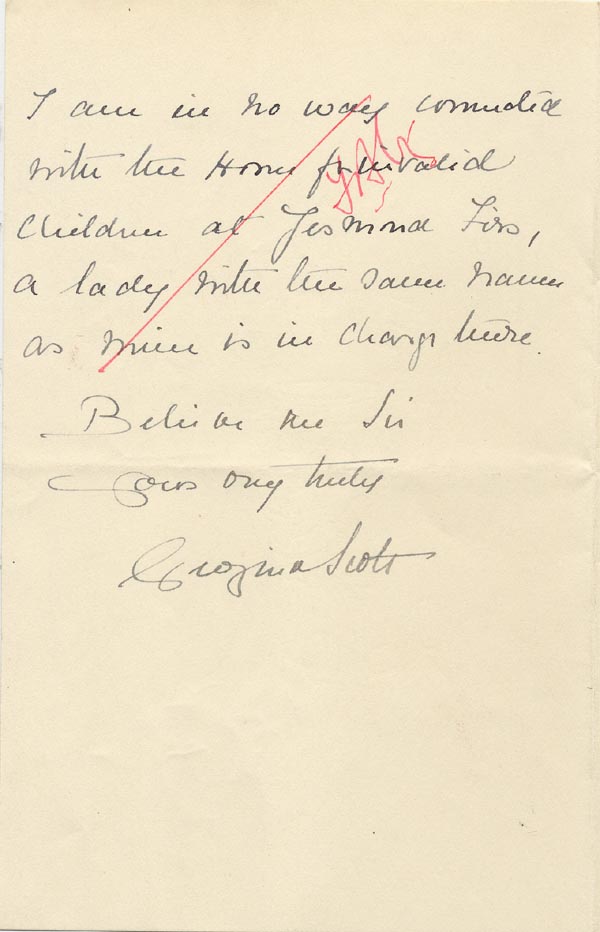 I am in no way connected
with the Home for invalid
Children at Jesmond Firs,
a lady with the same name
as mine is in charge there.
Believe me Sir
Yours very truly
Georgina Scott